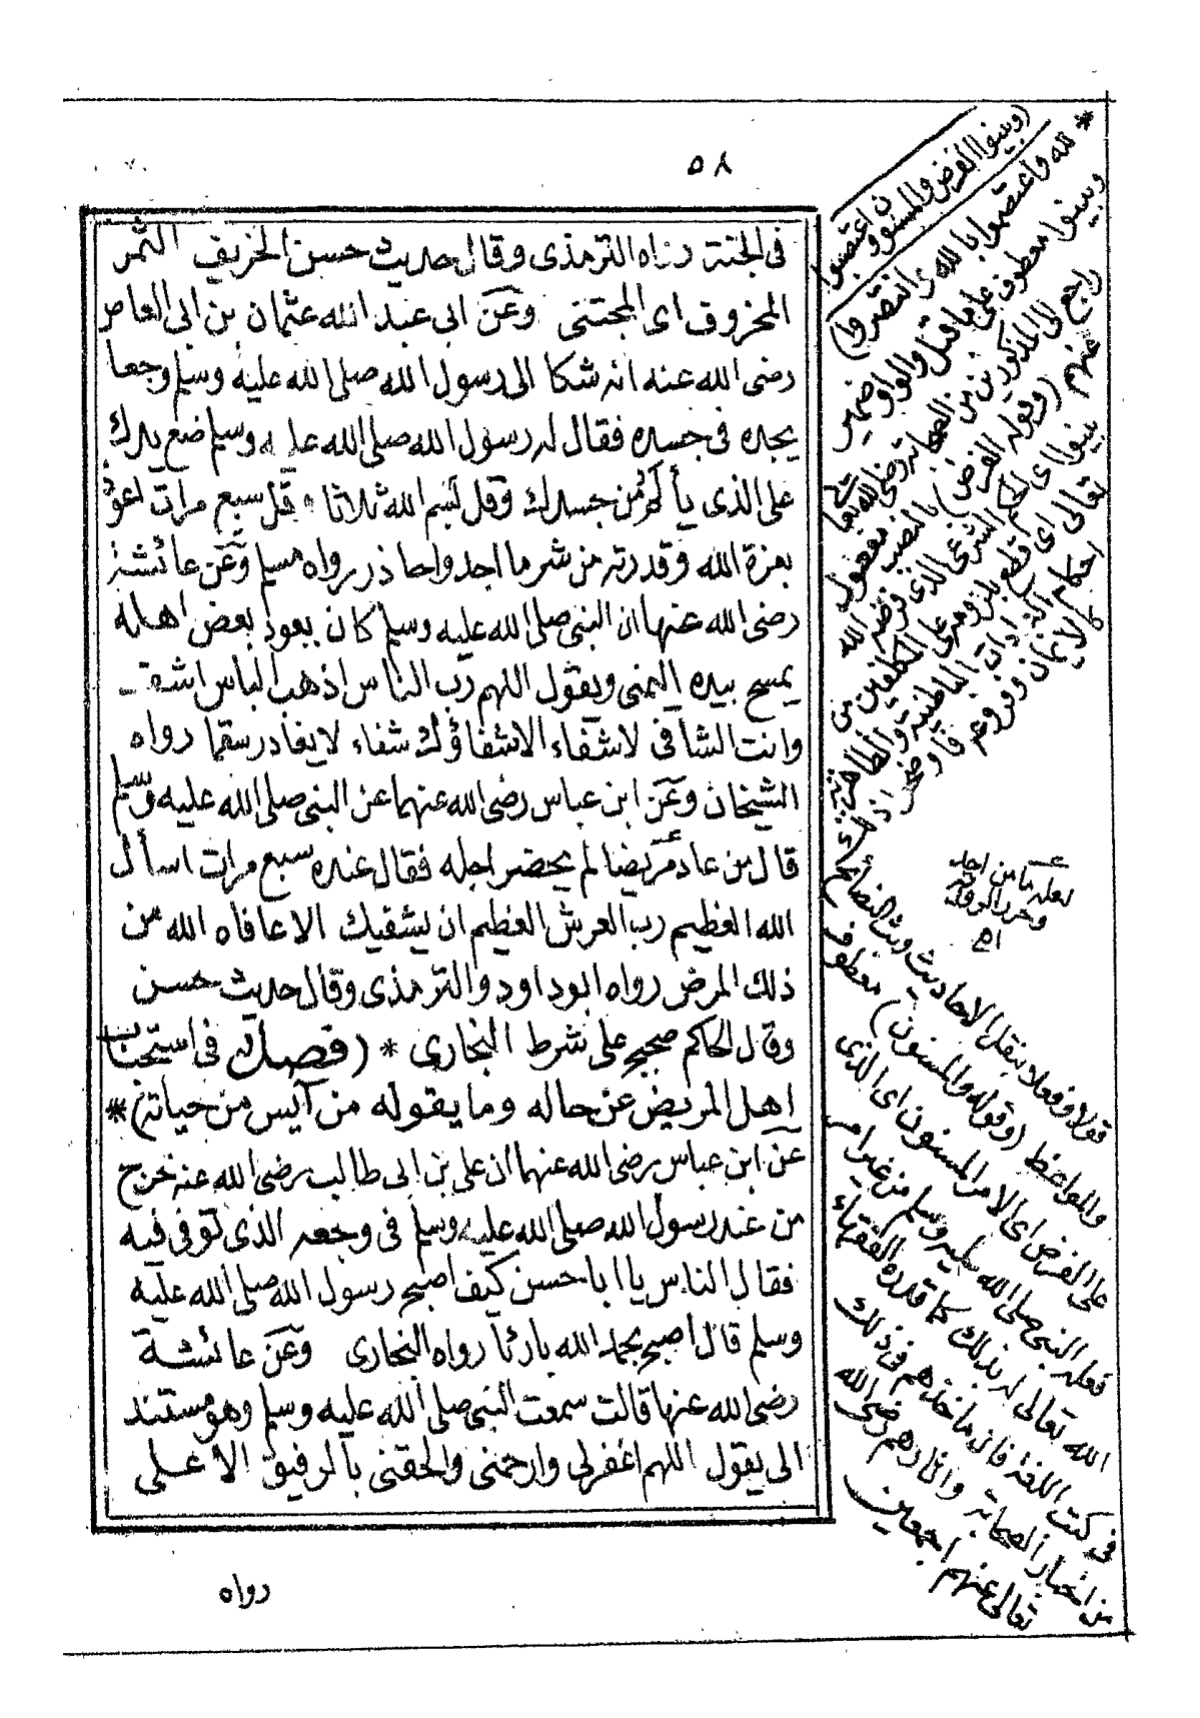 ٥٨
فى الجنة رواه الترمذى وقال حديث حسن الخريف الثمر
المخروف اى المجتنى وعن ابى عبد الله عثمان بن ابى العاص
رضى الله عنه انه شكا الى رسول الله صلى الله عليه وسلم وجعا
يجده فى جسده فقال له رسول الله صلى الله عليه وسلم ضع يدك
على الذى يألم من جسدك وقل بسم الله ثلاثا وقل سبع مرات اعوذ
بعزة الله وقدرته من شر ما اجد واحاذر رواه مسلم وعن عائشة
رضى الله عنها ان النبى صلى الله عليه وسلم كان يعوذ بعض اهله
يمسح بيده اليمنى ويقول اللهم رب الناس اذهب الباس اشف
وانت الشافى لا شفاء الا شفاؤك شفاء لا يغادر سقما رواه
الشيخان وعن ابن عباس رضى الله عنهما عن النبى صلى الله عليه وسلم
قال من عاد مريضا لم يحضر اجله فقال عنده سبع مرات اسأل
الله العظيم رب العرش العظيم ان يشفيك الا عافاه الله من
ذلك المرض رواه ابو داود والترمذى وقال حديث حسن
وقال الحاكم صحيح على شرط البخارى * (فصل فى استحباب
اهل المريض عن حاله وما يقوله من آيس من حياته) *
عن ابن عباس رضى الله عنهما ان على بن ابى طالب رضى الله عنه خرج
من عند رسول الله صلى الله عليه وسلم فى وجعه الذى توفى فيه
فقال الناس يا ابا حسن كيف اصبح رسول الله صلى الله عليه
وسلم قال اصبح بحمد الله بارئا رواه البخارى وعن عائشة
رضى الله عنها قالت سمعت النبى صلى الله عليه وسلم وهو مستند
الى يقول اللهم اغفر لى وارحمنى والحقنى بالرفيق الاعلى
رواه
(وبينوا الفرض والمسنو
ن اعتصبوا
* لله واعتصموا بالله و انتصروا)
وبينوا معطوف على ما قبل والواو ضمير
راجع الى المذكورين من الصحابة رضى الله تعا
عنهم (وقوله الفرض) بالنصب مفعول
بينوا اى الحكم الشرعى الذى فرضه الله
تعالى اى قطع بلزومه على المكلفين من
احكام الديانات الباطنية والظاهرية
كالايمان وفروعه
قولا وفعلا بنقل الاحاديث وبث النصائح
والمواعظ (وقوله والمسنون) معطوف
على الفرض اى الامر المسنون اى الذى
فعله النبى صلى الله عليه وسلم من غير امر
الله تعالى له بذلك كما قدره الفقهاء
فى كتب اللغة فان ماخذهم فى ذلك
من اخبار الصحابة وآثارهم رضى الله
تعالى عنهم اجمعين
اه